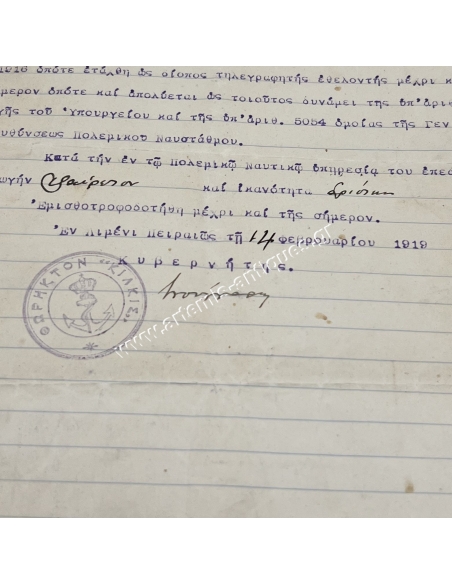 1918 ὁπότε ἐτάχθη ὡς δίοπος τηλεγραφητής ἐθελοντής μέχρι κ
μερον ὁπότε καί ἀπολύεται ὡς τοιοῦτος δυνάμει τῆς ὑπ'ἀριθ
γῆς τοῦ Ὑπουργείου καί τῆς ὑπ'ἀριθ. 5054 ὁμοίας τῆς Γεν
υθύνσεως Πολεμικοῦ Ναυστάθμου.
Κατά τήν ἐν τῷ Πολεμικῷ Ναυτικῷ ὑπηρεσία του ἐπεδ
ωγήν ἐξαίρετον καί ἱκανότητα ἀρίστην
Ἐμισθοτροφοδοτήθη μέχρι καί τῆς σήμερον.
Ἐν Λιμένι Πειραιῶς τῇ 14 Φεβρουαρίου 1919
Κυβερνήτης.
ΘΩΡΗΚΤΟΝ "ΚΙΛΚΙΣ"
www.artemis-antiques.gr